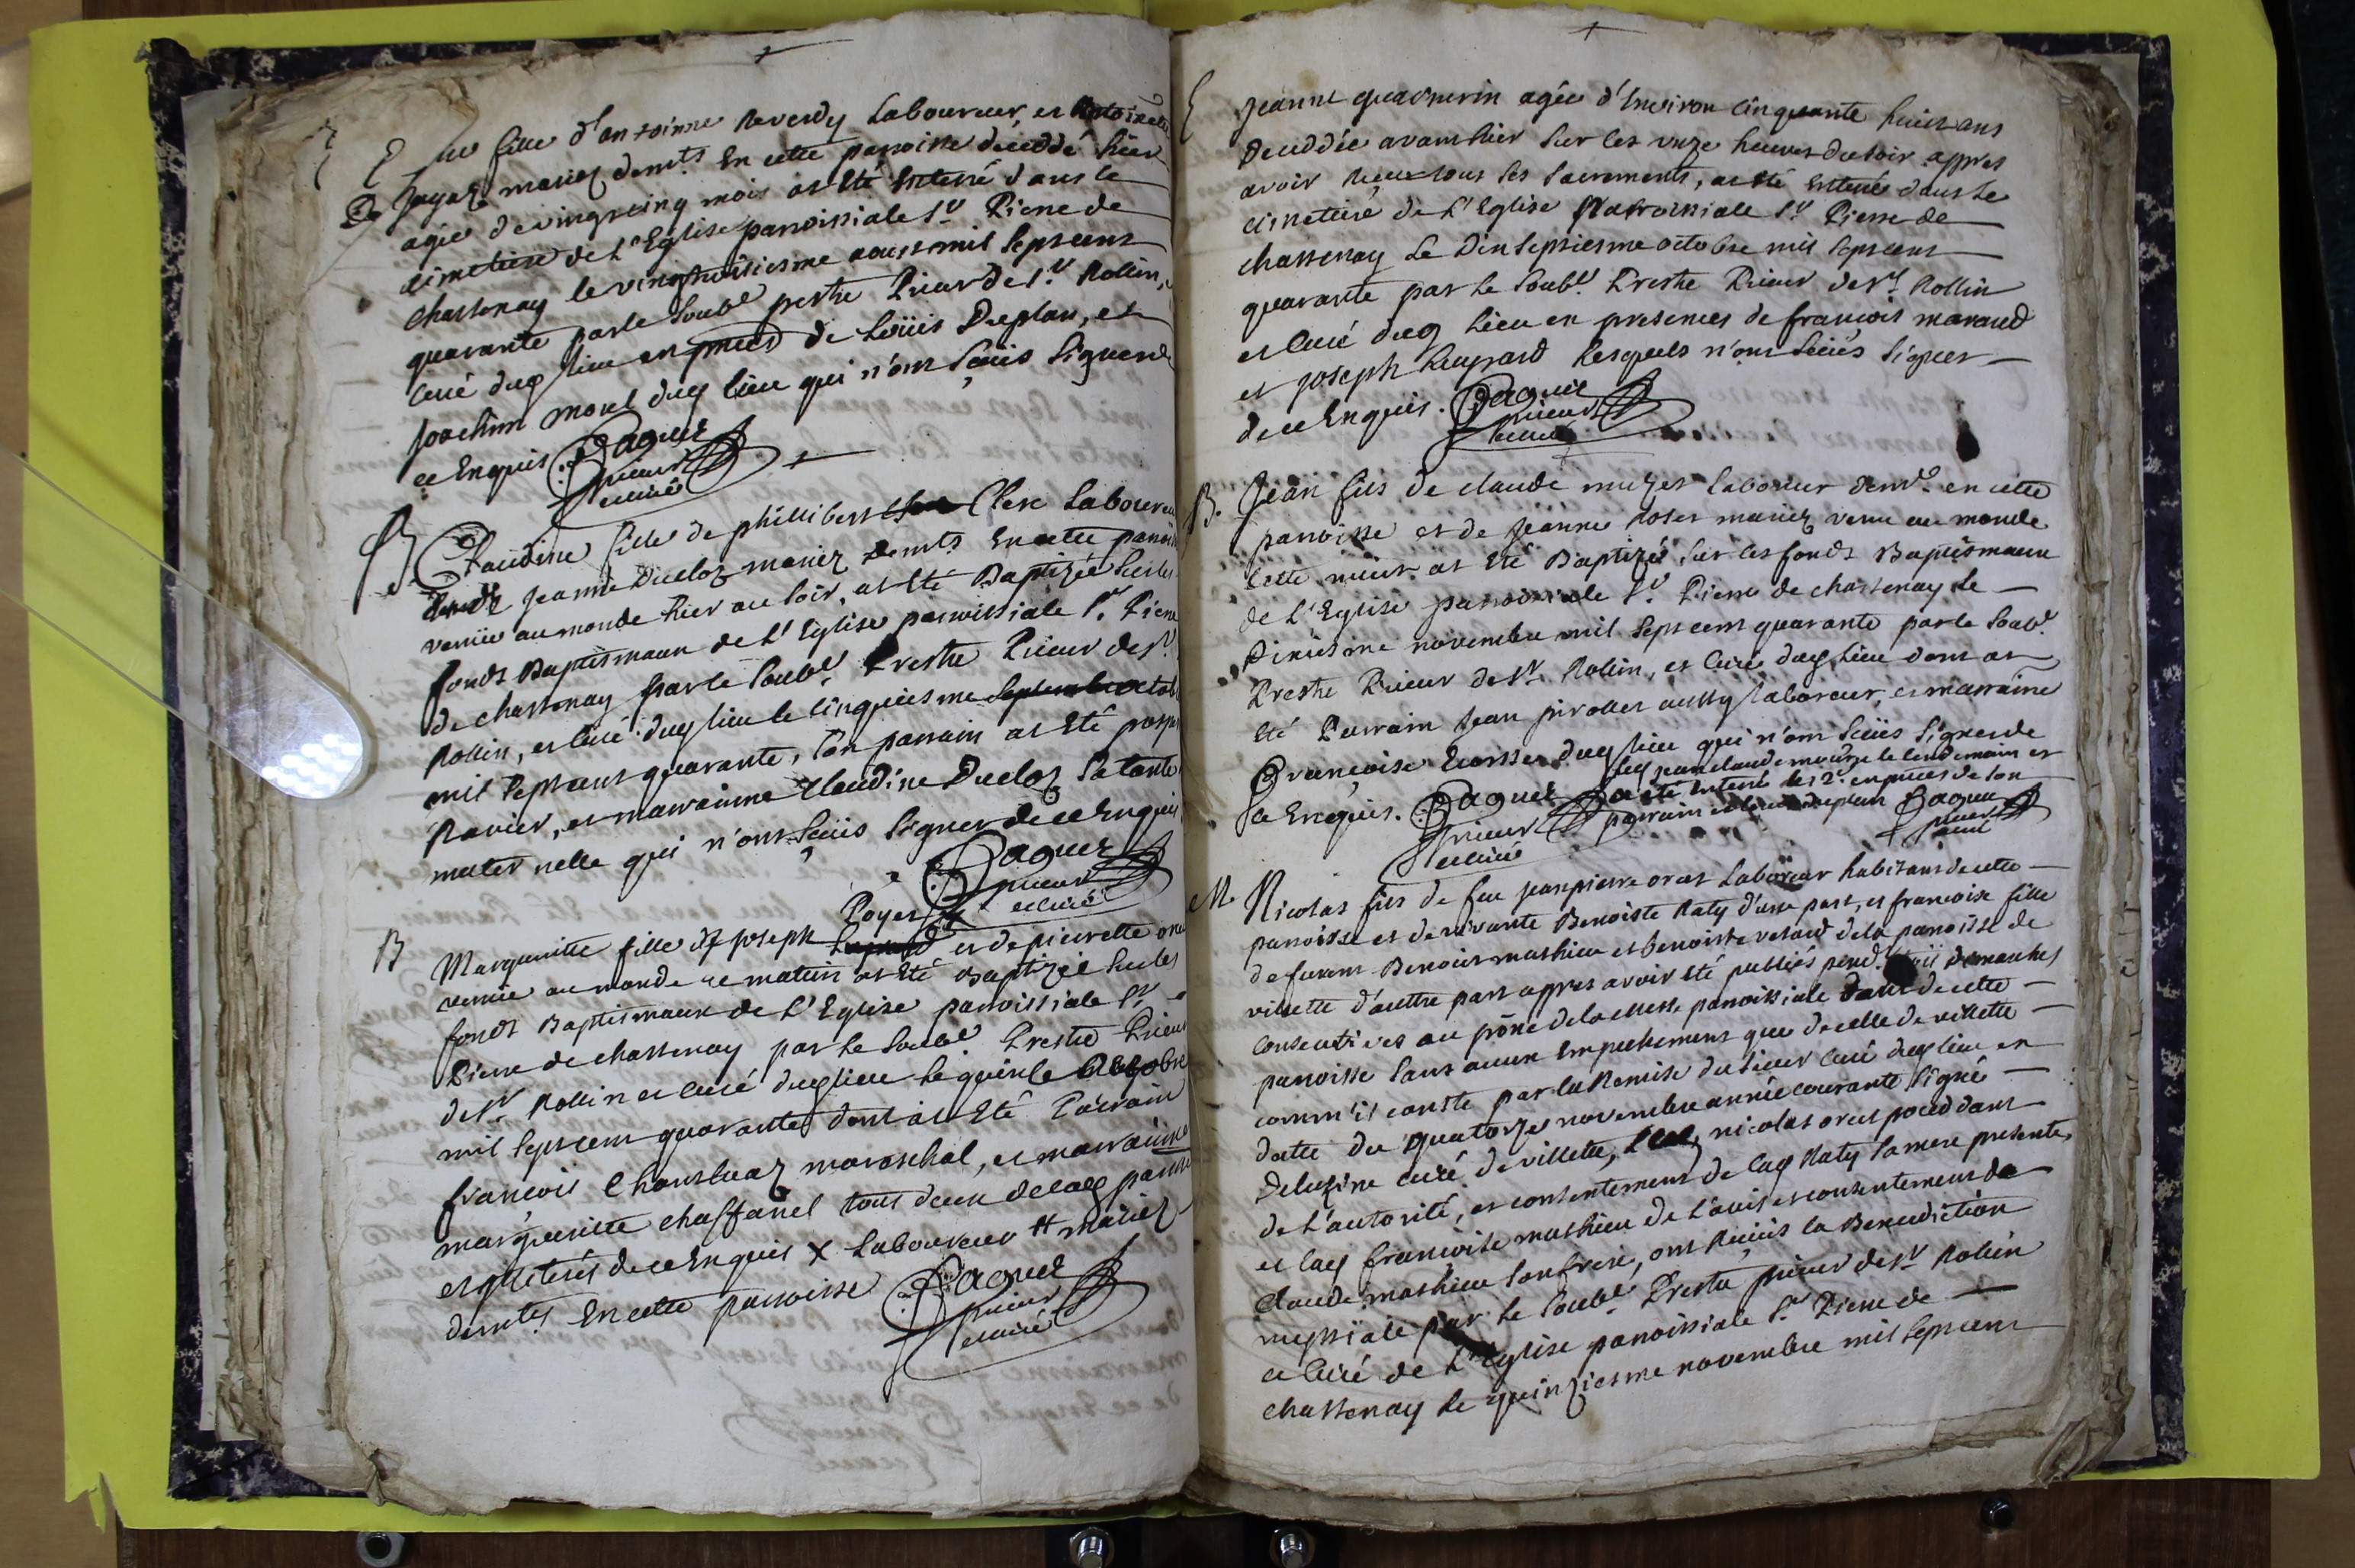 E une fille d'antoinne Reverdy Laboureur, et Antoinette
De mariez demts. En cette parroisse decedde hier
agée de vingtcinq mois at Eté Enterré dans le
cimetiere de L'Eglise parroissiale St Pierre de
chastenay le vingthuitiesme aoust mil Septcent
quarante par le Soubé prestre Prieur de St. Rollin,
curé duq lieu en pnces de Loüis Duplan, et
Joachim morel duq lieu qui n'ont Sçüis Signer de
ce Enquis Paquet
prieur
et curé
B Claudine fille de phillibert Clerc Laboureur
et de Jeanne Duclos mariez demts En cette parroisse
venüe au monde hier au soir, at Eté Baptizée sur les
fonds Baptismaux de L'Eglise parroissiale St. Pierre
de chastenay par le Soubé. Prestre Prieur de St.
Rollin, et Curé duq lieu le Cinquiesme octobre
mil Septcent quarante, Son parrain at Eté
Ravier, et marrainne Claudine Duclos Sa tante
maternelle qui n'ont Sçüis Signer de ce Enquis
Paquet
prieur
et curé
Poyet
B Margueritte fille de joseph et de pierrette
venüe au monde ce matin at Eté Baptizée sur les
fonds Baptismaux de L'Eglise parroissiale St
Pierre de chastenay par le Soubé Prestre Prieur
de St Rollin et Curé duq lieu le quinse octobre
mil Septcent quarante dont at Eté Parrain
françois mareschal, et marrainne
margueritte chaffanel tous deux de lad
et de ce Enquis X Laboureur H mariez
demts En cette parroisse Paquet
prieur
et curé
E Jeanne agée d'Environ Cinquante huict ans
Deceddée avanthier Sur les unze heures du soir appres
avoir Reçeu tous Ses Sacrements, at Eté Enterrée dans Le
cimetiere de L'Eglise Parroissiale St Pierre de
chastenay Le Dixseptiesme octobre mil Septcent
quarante par le Soubé. Prestre Prieur de St Rollin
et Curé duq Lieu en presences de françois maraud
et joseph Lesquels n'ont Sçüés Signer
de ce Enquis. Paquet
prieur
et curé
B. Jean fils de claude Laboreur demt. en cette
parroisse et de Jeanne mariez venu au monde
cette nuict at Eté Baptizé, Sur les fonds Baptismaux
de L'Eglise parroissiale St. Pierre de chastenay Le
Dixiesme novembre mil Septcent quarante par le Soubé.
Prestre Prieur de St. Rollin, et Curé duq Lieu dont at
Eté Parrain Jean aussy laboreur, et marraine
Françoise duq lieu qui n'ont Sçüés Signer de
ce Enquis. Paquet
prieur
et curé
le lendemain et
a Eté Enterré en pnces de Son
parrain Paquet
prieur
curé
M. Nicolas fils de feu Jeanpierre oret Laboreur habitant de cette
parroisse et de vivante Benoiste Raty d'une part, et francoise fille
de furent Benoist mathieu et benoiste de la parroisse de
villette d'auttre part appres avoir Eté publiés pend. trois dimanches
consecutives au prône de la messe parroissiale de cette
parroisse Sans aucun Empechement que de celle de villette
comm'il conste par la Remise du Sieur Curé duq lieu en
datte du quatorze novembre année courante Signé
curé de villette, nicolas oret procedant
de l'autorité, et consentement de laq Raty Sa mere presente,
et laq francoise mathieu de L'avis et consentement de
claude mathieu Son frere, ont Reçüs la Benediction
nuptiale par le Soubé. Prestre, prieur de St Rollin
et Curé de L'Eglise parroissiale St Pierre de
chastenay le quinziesme novembre mil Septcent